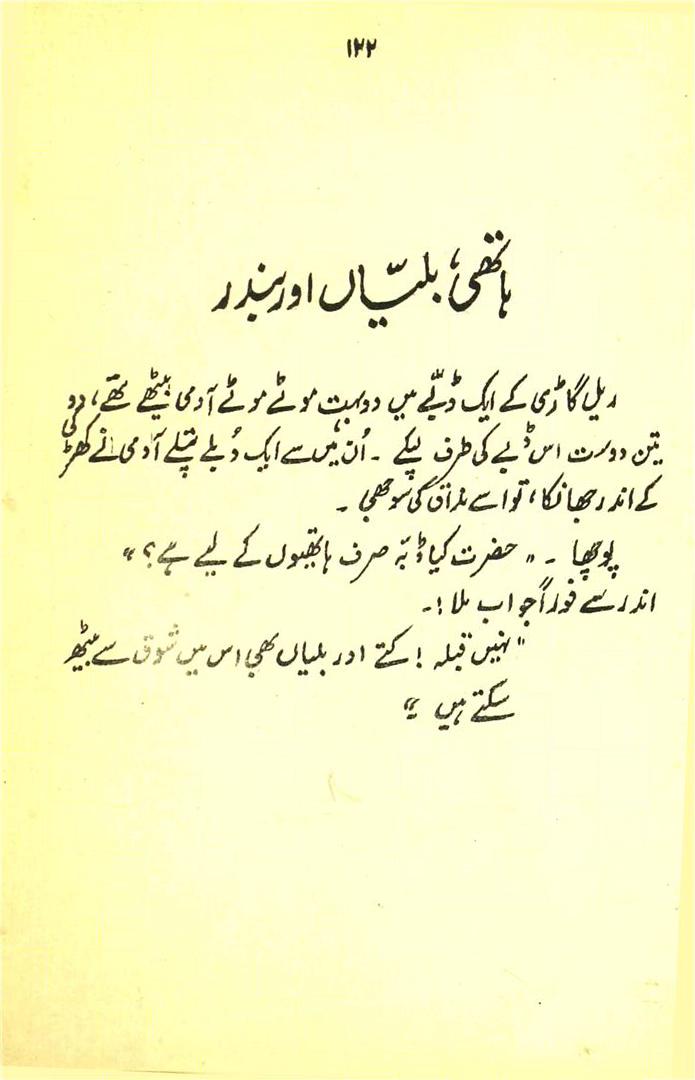 ۱۲۲
ہاتھی، بلّیاں اور بندر
ریل گاڑی کے ایک ڈبّے میں دو بہت موٹے موٹے آدمی بیٹھے تھے، دو
تین دوست اس ڈبے کی طرف لپکے ۔ اُن میں سے ایک دُبلے پتلے آدمی نے کھڑکی
کے اندر جھانکا، تو اسے مذاق کی سوجھی ۔
پوچھا ۔ " حضرت کیا ڈبّہ صرف ہاتھیوں کے لیے ہے؟ "
اندر سے فوراً جواب ملا!۔
" نہیں قبلہ ! کتے اور بلیاں بھی اس میں شوق سے بیٹھ
سکتے ہیں ۔"